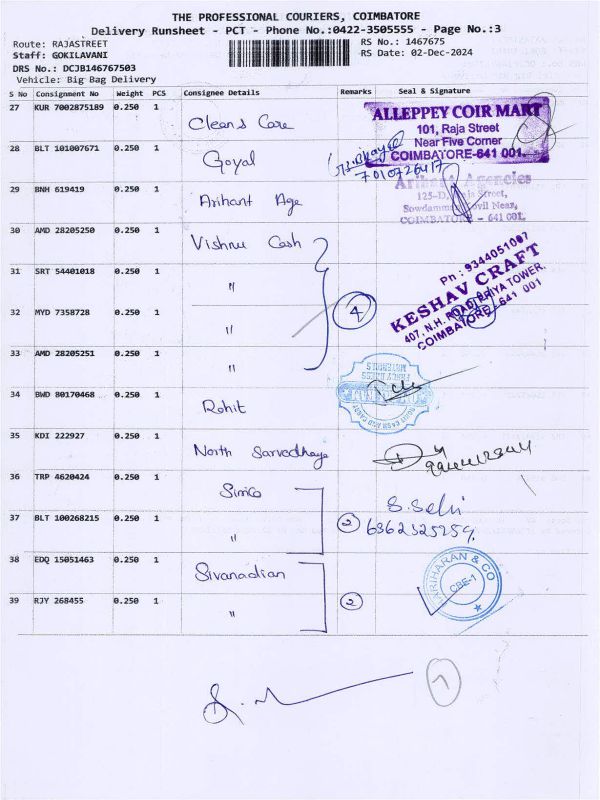 THE PROFESSIONAL COURIERS, COIMBATORE
Delivery Runsheet - PCT - Phone No.:0422-3505555 - Page No.:3
Route: RAJASTREET
RS No.: 1467675
Staff: GOKILAVANI
RS Date: 02-Dec-2024
DRS No.: DCJB146767503
Vehicle: Big Bag Delivery
S No Consignment No Weight PCS Consignee Details Remarks Seal & Signature
27 KUR 7002875189 0.250 1 Cleans Care
ALLEPPEY COIR MART
101, Raja Street
Near Five Corner
COIMBATORE-641 001
28 BLT 101007671 0.250 1 Goyal
7010726417
29 BNH 619419 0.250 1 Arihant Age
Agencies
COIMBATORE - 641 001.
30 AMD 28205250 0.250 1 Vishnu Cash
31 SRT 54401018 0.250 1 "
Ph : 9344051097
KESHAV CRAFT
407, N.H. ROAD, PRIYA TOWER,
COIMBATORE-641 001
32 MYD 7358728 0.250 1 " 4
33 AMD 28205251 0.250 1 "
34 BWD 80170468 0.250 1 Rohit
35 KDI 222927 0.250 1 North Sarvodhaya
36 TRP 4620424 0.250 1 Simco
37 BLT 100268215 0.250 1 " 2
6362325259
38 EDQ 15051463 0.250 1 Sivanadian
HARIHARAN & CO
CBE-1
39 RJY 268455 0.250 1 " 2
7